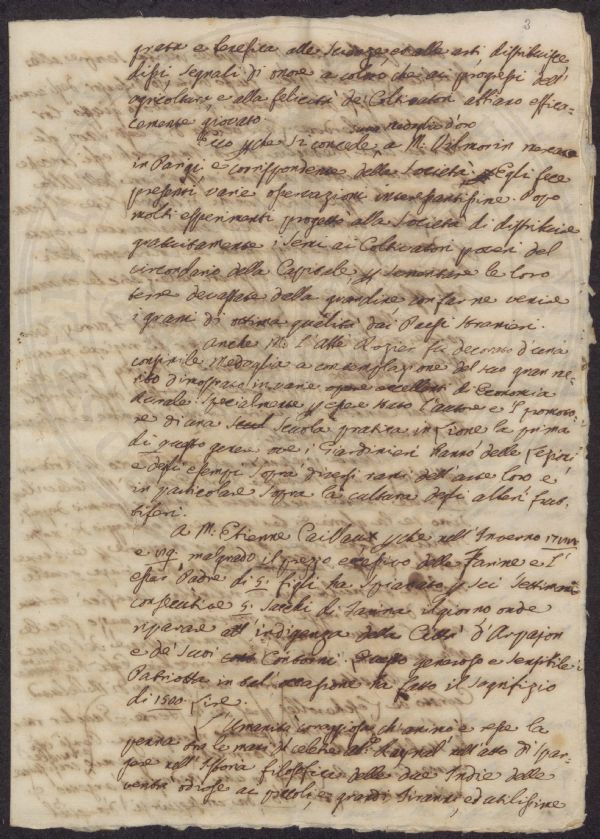 3
grata e benefica alle Scienze, et alle arti distribuisce
dessi segnali di onore a coloro che ai progressi dell'
agricoltura e alla felicità de' Coltivatori abbiano effica-
cemente giovato.
una medaglia d'oro
Ecco che si concede a M. Vilmorin
in Parigi e corrispondente della Società. Egli fece
presenti varie osservazioni interessantissime. Dopo
molti esperimenti progettò alla Società di distribuire
gratuitamente i semi ai Coltivatori poveri del
circondario della Capitale, sementare le loro
terre devastate dalla grandine con farne venire
i grani di ottima qualità dai Paesi stranieri.
Anche M. l'Abe Rozier fu decorato d'una
consimile Medaglia a contemplazione del suo gran me-
rito dimostrato in varie opere eccellenti di Economia
Rurale specialmente essere stato l'autore e 'l promoto-
re di una Scuola pratica in Lione la prima
di questo genere ove i Giardinieri hanno delle Lezioni
e degli esempi sopra diversi rami dell'arte loro e
in particolare sopra la cultura degli alberi frut-
tiferi.
A M. Etienne Caillaux che nell'Inverno
e malgrado il prezzo eccessivo delle Farine e l'
esser Padre di 5 figli ha sei Settimane
consecutive 5 Sacchi di farina il giorno onde
riparare all'indigenza della Città d'Arpajon
e de' suoi Contorni. Questo generoso e sensibile
Patriotta in tal occasione ha fatto il Sagrifizio
di 1500 Lire.
L'Umanità coraggiosa di animo e rese la
penna tra le mani del celebre Ab. Raynal nell'atto di spar-
gere nell'Istoria filosofica delle due Indie delle
verità odiose ai piccoli e grandi Tiranni, ed utilissime